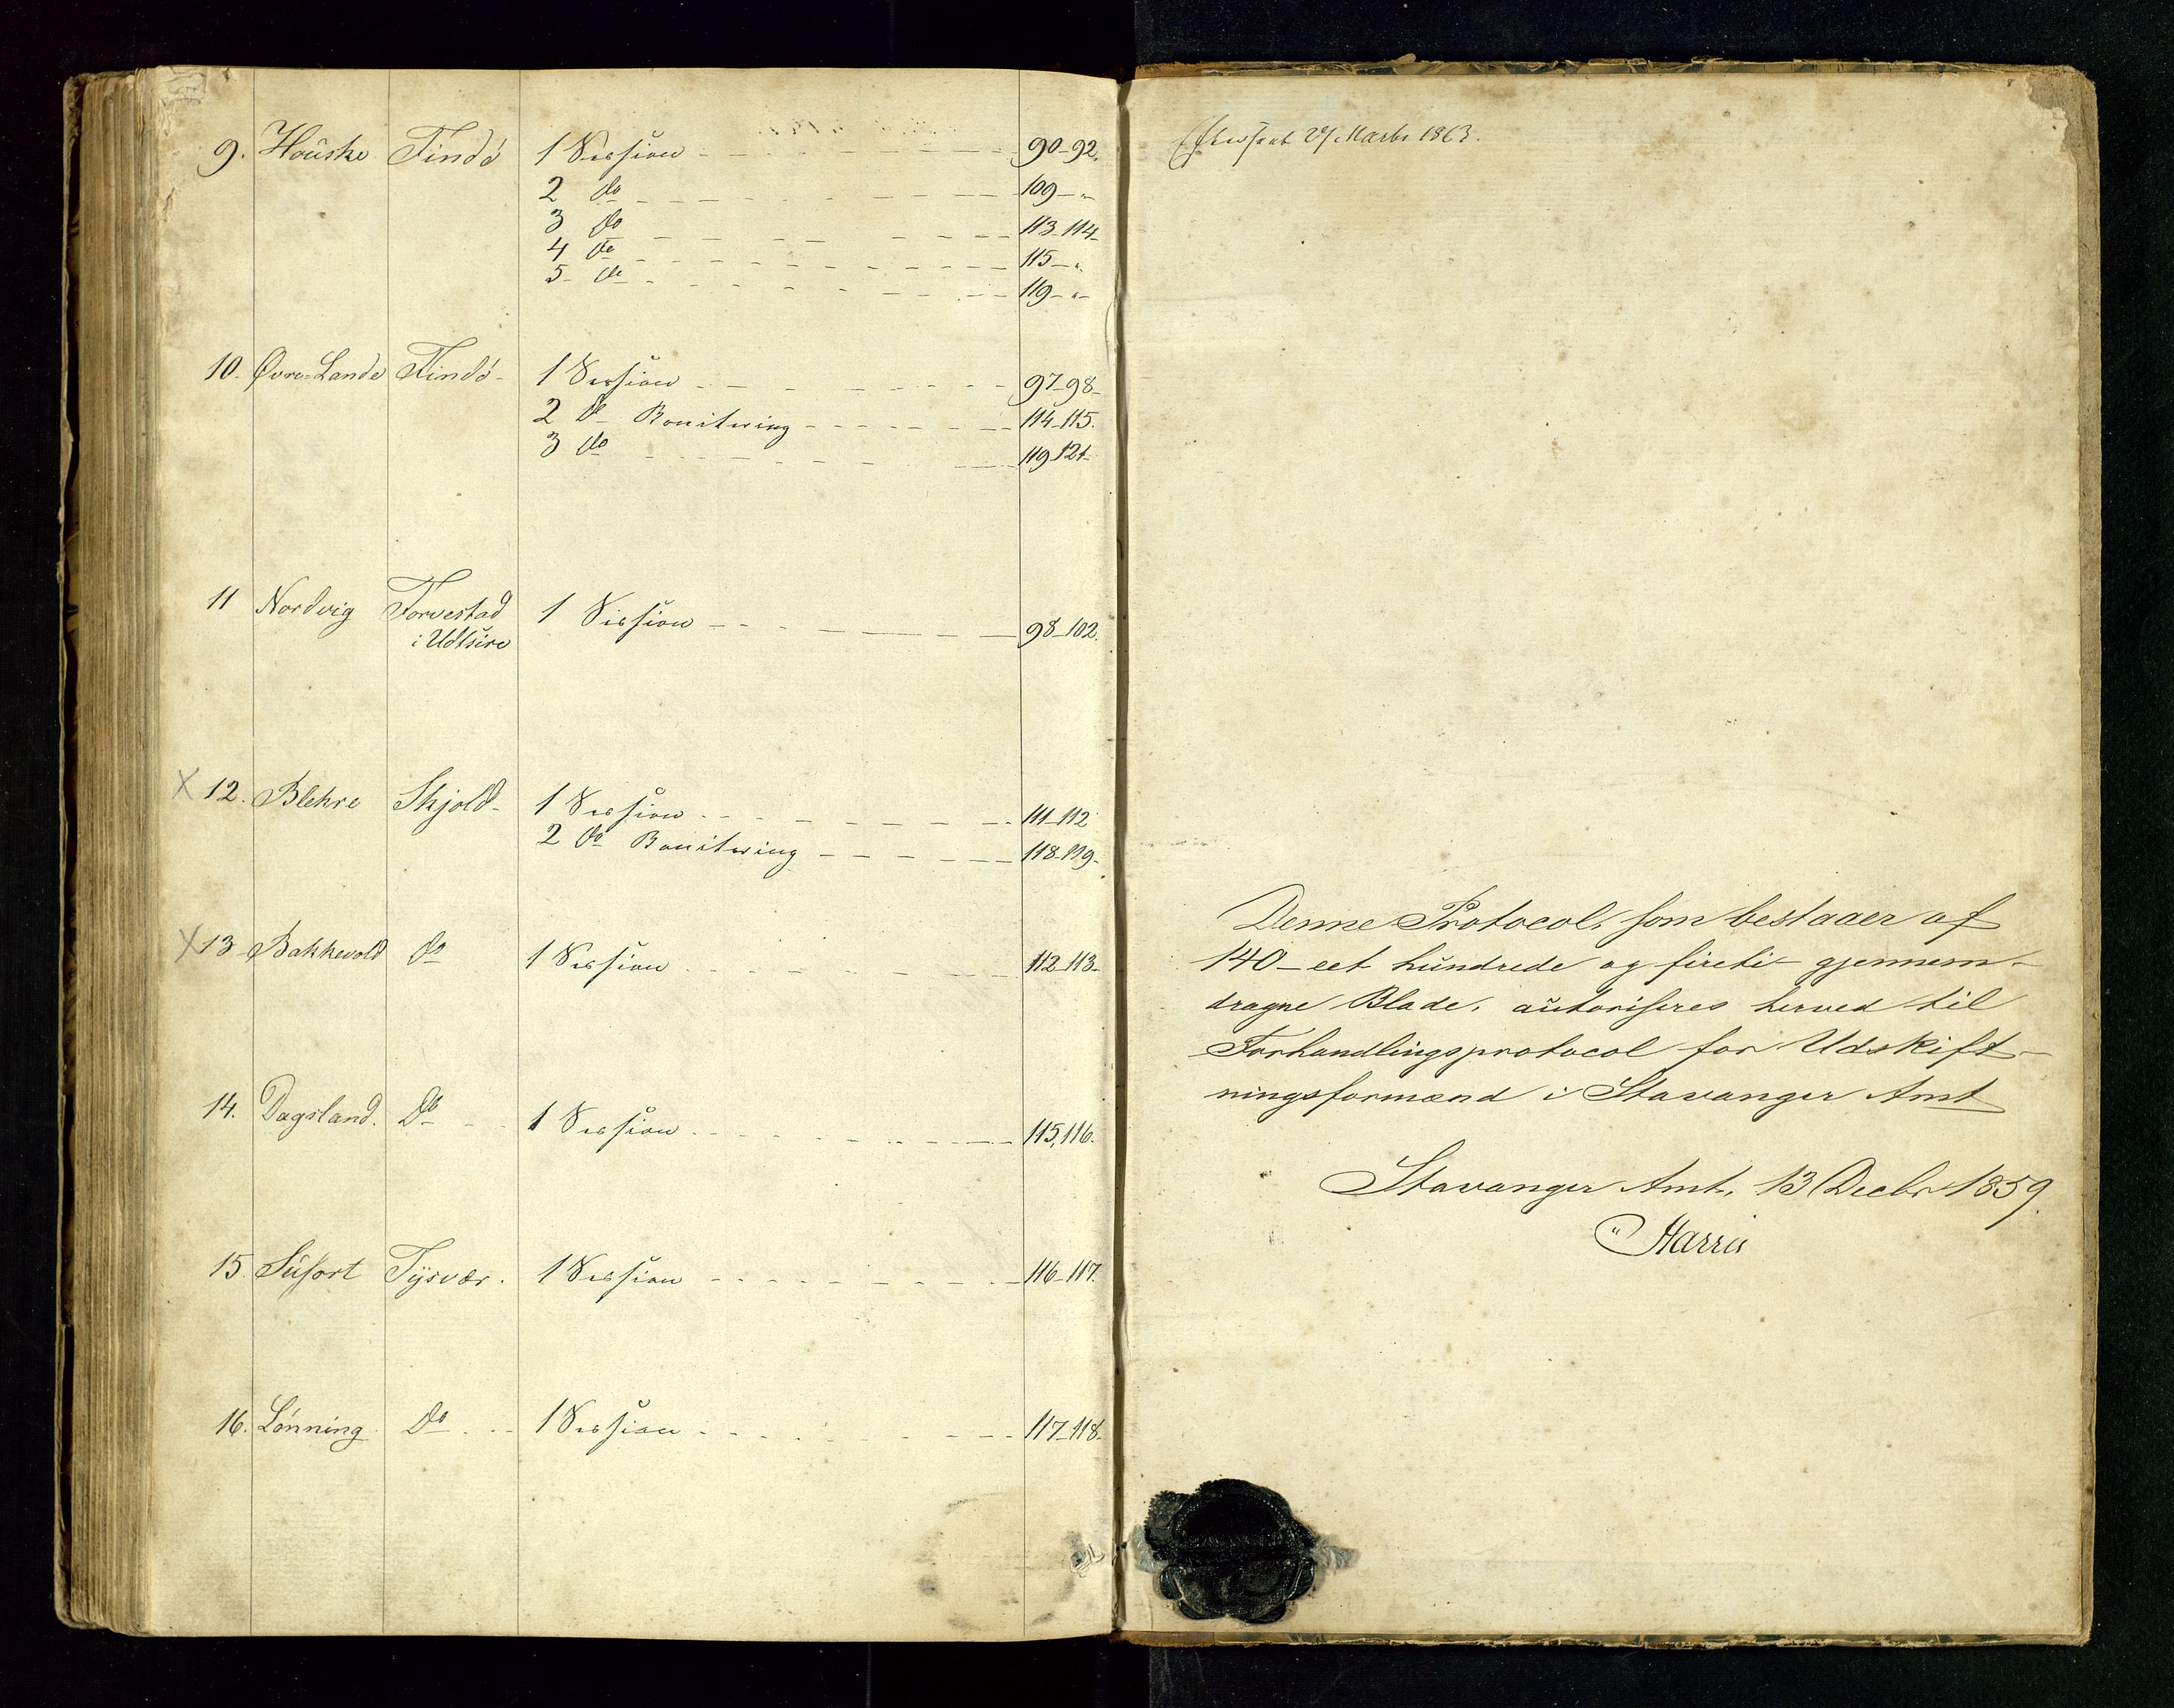 9. Hauske Findö 1 Session 90-92.
2 do 109-"
3 do 113-114-
4 do 115-"
5- do 119-"-
10. Øvre-Lande Findö- 1 Session 97-98-
2 do Bonitering 114-115.
3 do 119 121-
11 Nordvig Torvestad 1 Session 98-102.
i Udtsire
X 12. Blehre Skjold- 1 Session 111-112
2 do Bonitering 118-119-
X 13 Bakkevold do 1 Session 112-113-
14. Dagsland. Do 1 Session 115,116.
15. Süfort Tysvær. 1 Session 116-117.
16. Lönning Do 1 Session 117-118-
Efterseet 27/ Marts 1863.
Denne Protocol, som bestaaer af
140 - eet hundrede og fireti - gjennem-
dragne Blade, autoriseres herved til
Forhandlingsprotocol for Udskift-
ningsformænd i Stavanger Amt
Stavanger Amt, 13 Decbr 1859.
Harris